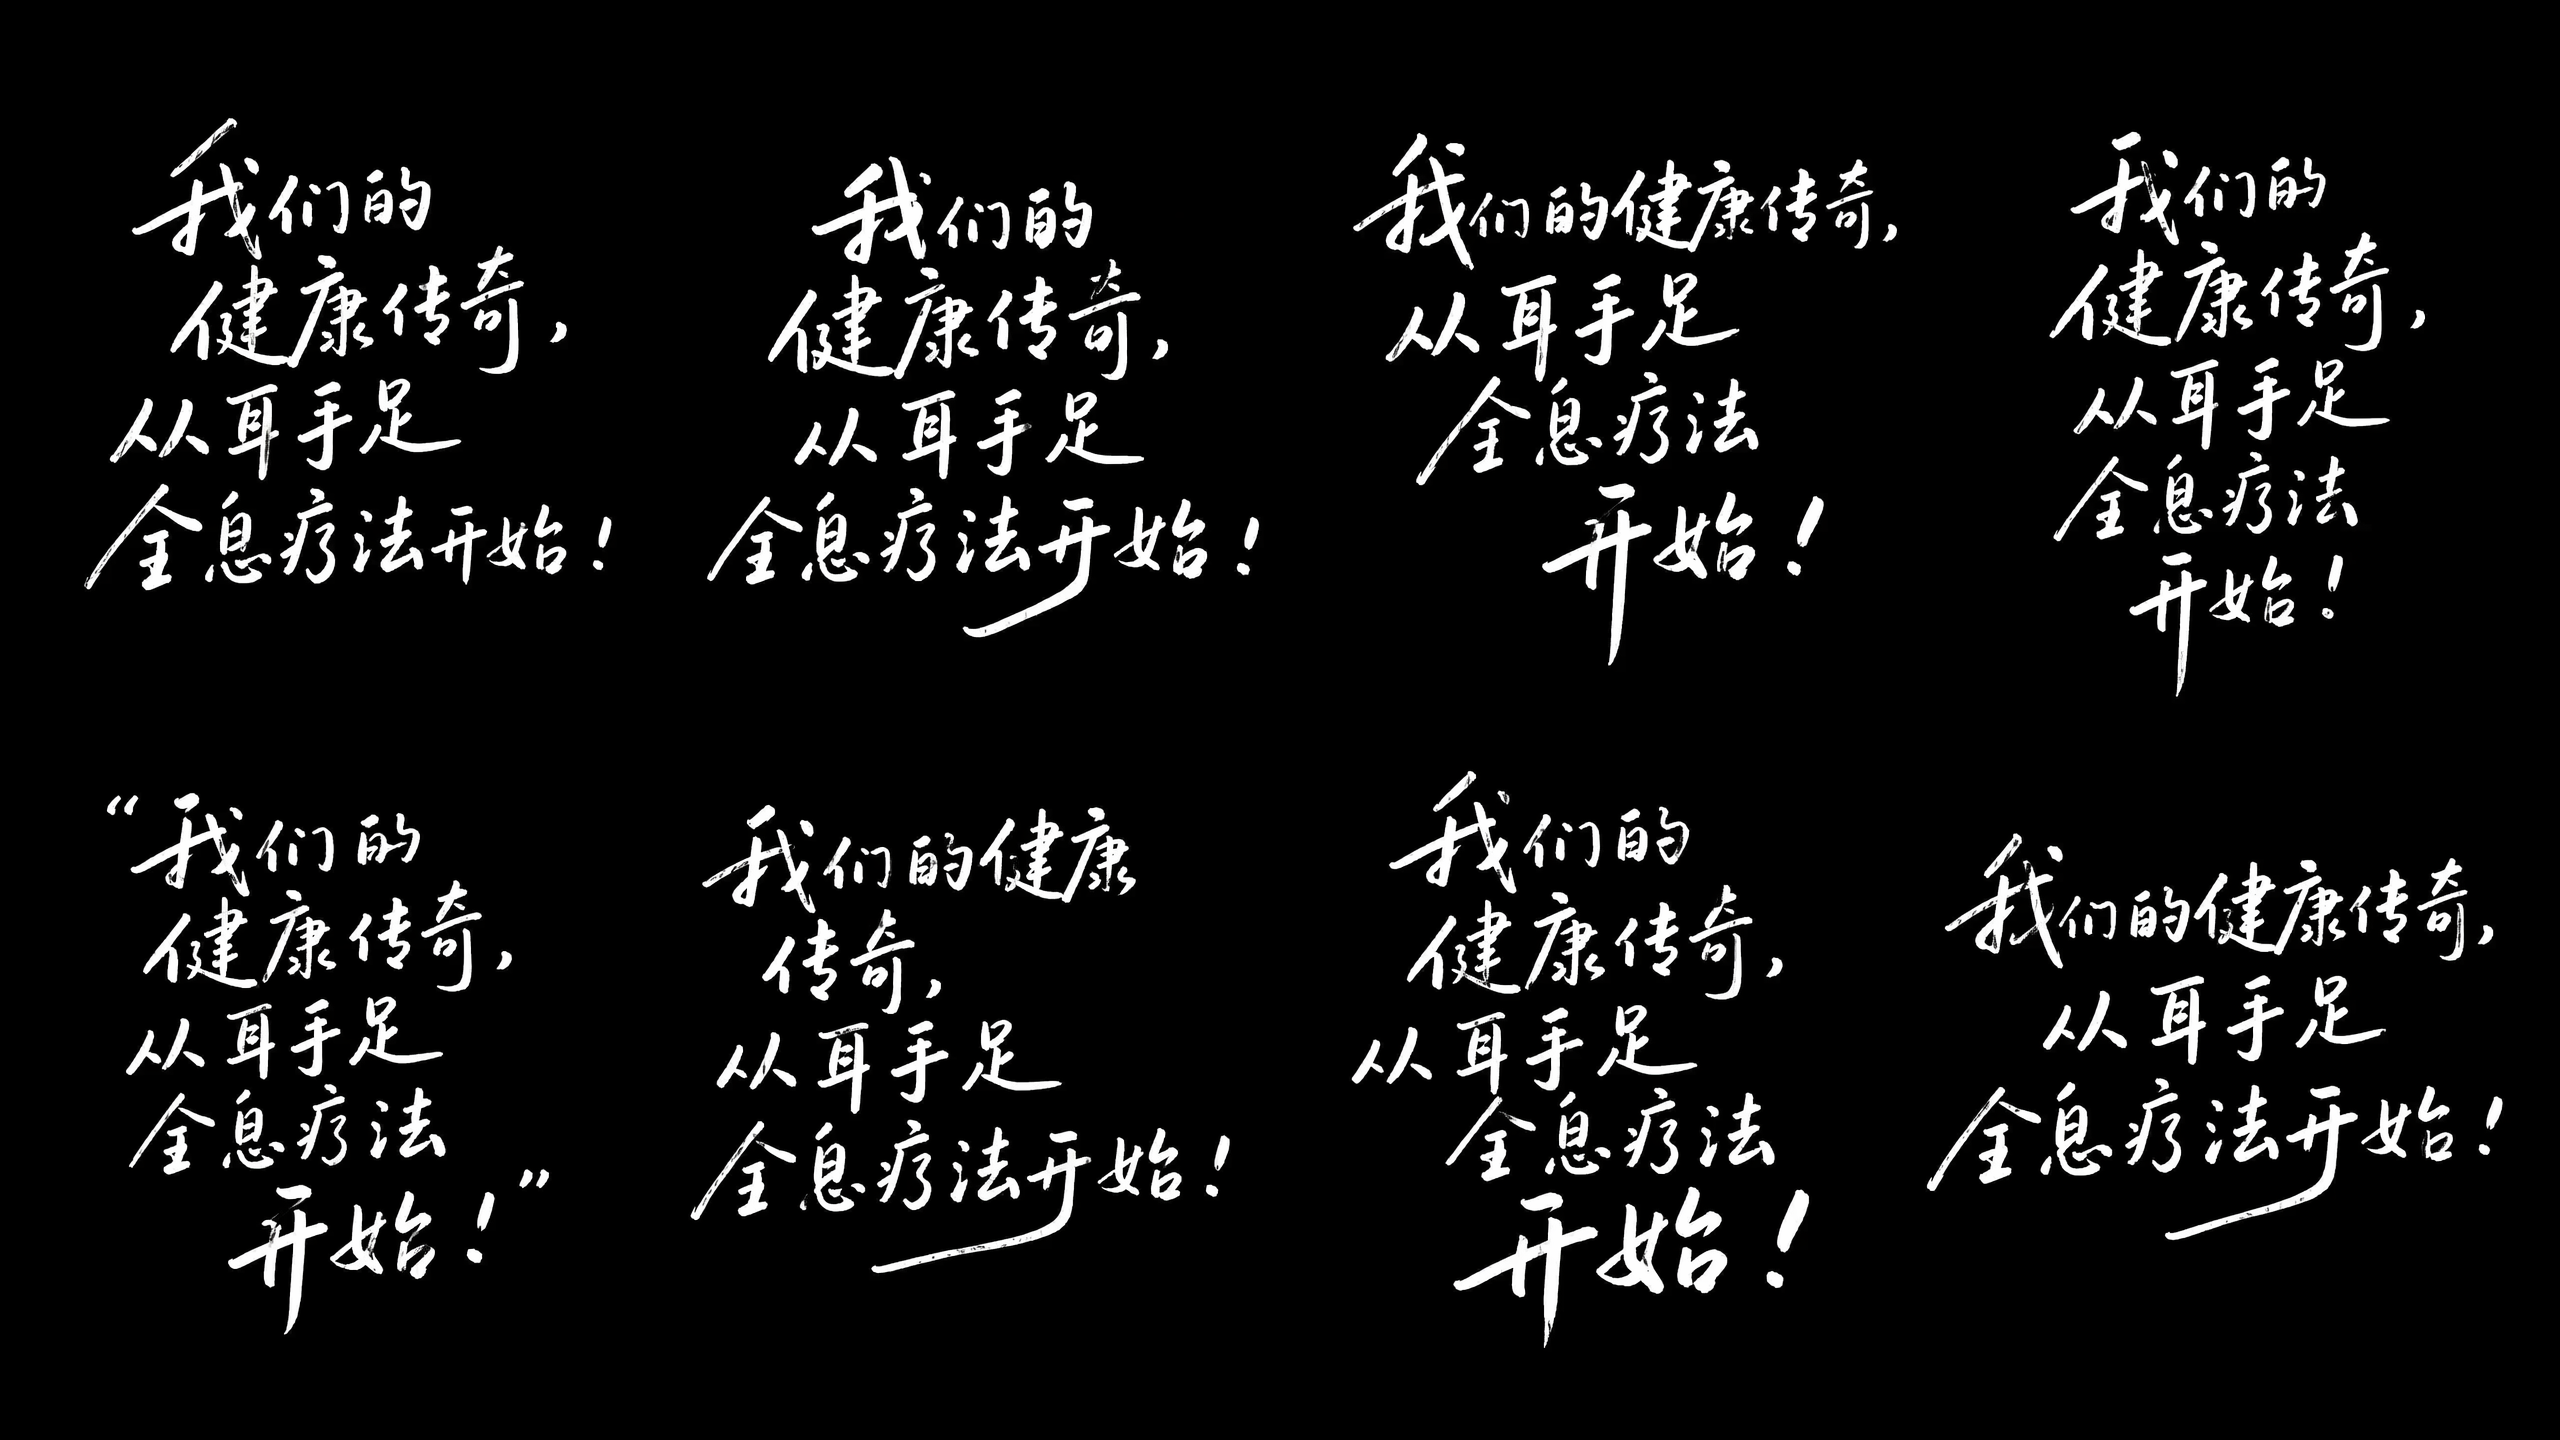 我们的
健康传奇，
从耳手足
全息疗法开始！
我们的
健康传奇，
从耳手足
全息疗法开始！
我们的健康传奇，
从耳手足
全息疗法
开始！
我们的
健康传奇，
从耳手足
全息疗法
开始！
“我们的
健康传奇，
从耳手足
全息疗法
开始！”
我们的健康
传奇，
从耳手足
全息疗法开始！
我们的
健康传奇，
从耳手足
全息疗法
开始！
我们的健康传奇，
从耳手足
全息疗法开始！